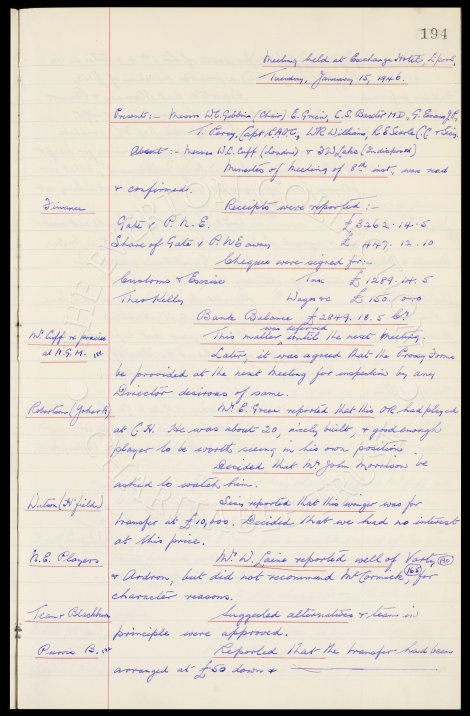 194
Meeting held at Exchange Hotel, L'pool,
Tuesday, January 15, 1946.
Present:- Messrs W.C. Gibbins (Chair) E. Green, C.S. Baxter M.D., G. Evans J.P,
T. Percy, Capt. , W.R. Williams, R.E. Searle C.C. & Secy.
Absent:- Messrs W.C. Cuff (London) & (Indisposed)
Minutes of Meeting of 8th inst, was read
& confirmed.
Finance Receipts were reported:-
Gate v P.N.E. £3262.14.5
Share of Gate v P.N.E away £ 447.12.10
Cheques were signed for:-
Customs & Excise Tax £ 1289.14.5
Theo Kelly Wages ac £ 150.0.0
Bank Balance £2849.18.5 Cr
Mr Cuff re proxies This matter was deferred until the next Meeting.
at A.G.M. Later, it was agreed that the Proxy Forms
be provided at the next Meeting for inspection by any
Director desirous of same.
Robertson (Yoker A) Mr E. Green reported that this OR had played
at C.H. He was about 20, nicely built, & good enough
player to be worth seeing in his own position.
Decided that Mr John Morrison be
asked to watch him.
Watson (H'field) Secy. reported that this winger was for
transfer at £10,000. Decided that we had no interest
at this price.
N.E. Players Mr W. Laine reported well of Varty (190)
& Ardron, but did not recommend McCormick (165) for
character reasons.
Team v Blackburn Suggested alternatives & team in
principle were approved.
Purvis B. Reported that the transfer had been
arranged at £50 down &